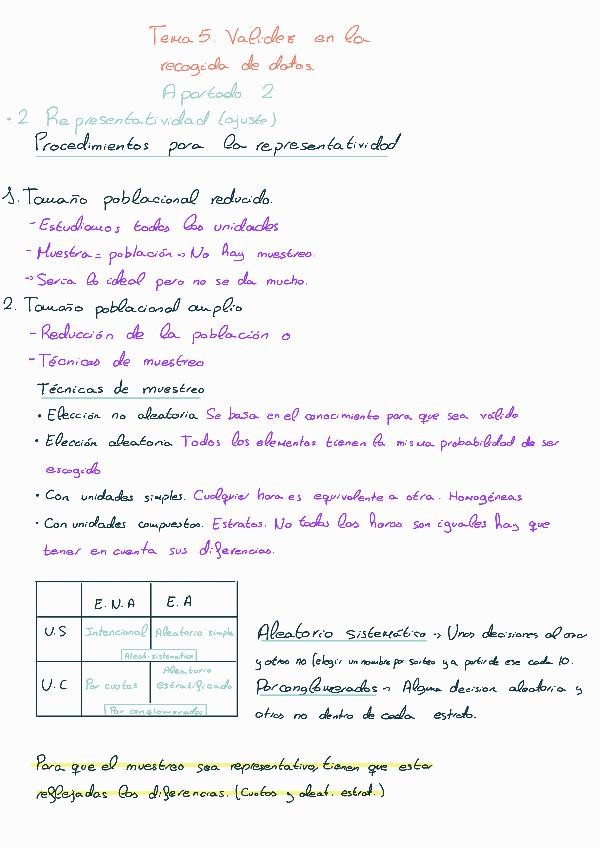 Tema 5. Validez en la
recogida de datos.
Apartado 2
·2 Representatividad (ajuste)
Procedimientos para la representatividad
1. Tamaño poblacional reducido.
- Estudiamos todas las unidades
- Muestra = población → No hay muestreo.
→ Sería lo ideal pero no se da mucho.
2. Tamaño poblacional amplio
- Reducción de la población o
- Técnicas de muestreo
Técnicas de muestreo
· Elección no aleatoria Se basa en el conocimiento para que sea válido
· Elección aleatoria Todos los elementos tienen la misma probabilidad de ser
escogido
· Con unidades simples. Cualquier hora es equivalente a otra. Homogéneas
· Con unidades compuestas. Estratos. No todas las horas son iguales hay que
tener en cuenta sus diferencias.
E.N.A E.A
U.S Intencional Aleatorio simple
Aleat. sistemático
U.C Por cuotas Aleatorio estratificado
Por conglomerados
Aleatorio sistemático → Unas decisiones al azar
y otras no (elegir un nombre por sorteo y a partir de ese cada 10.
Por conglomerados → Alguna decisión aleatoria y
otras no dentro de cada estrato.
Para que el muestreo sea representativo, tienen que estar
reflejadas las diferencias. (Cuotas y aleat. estrat.)